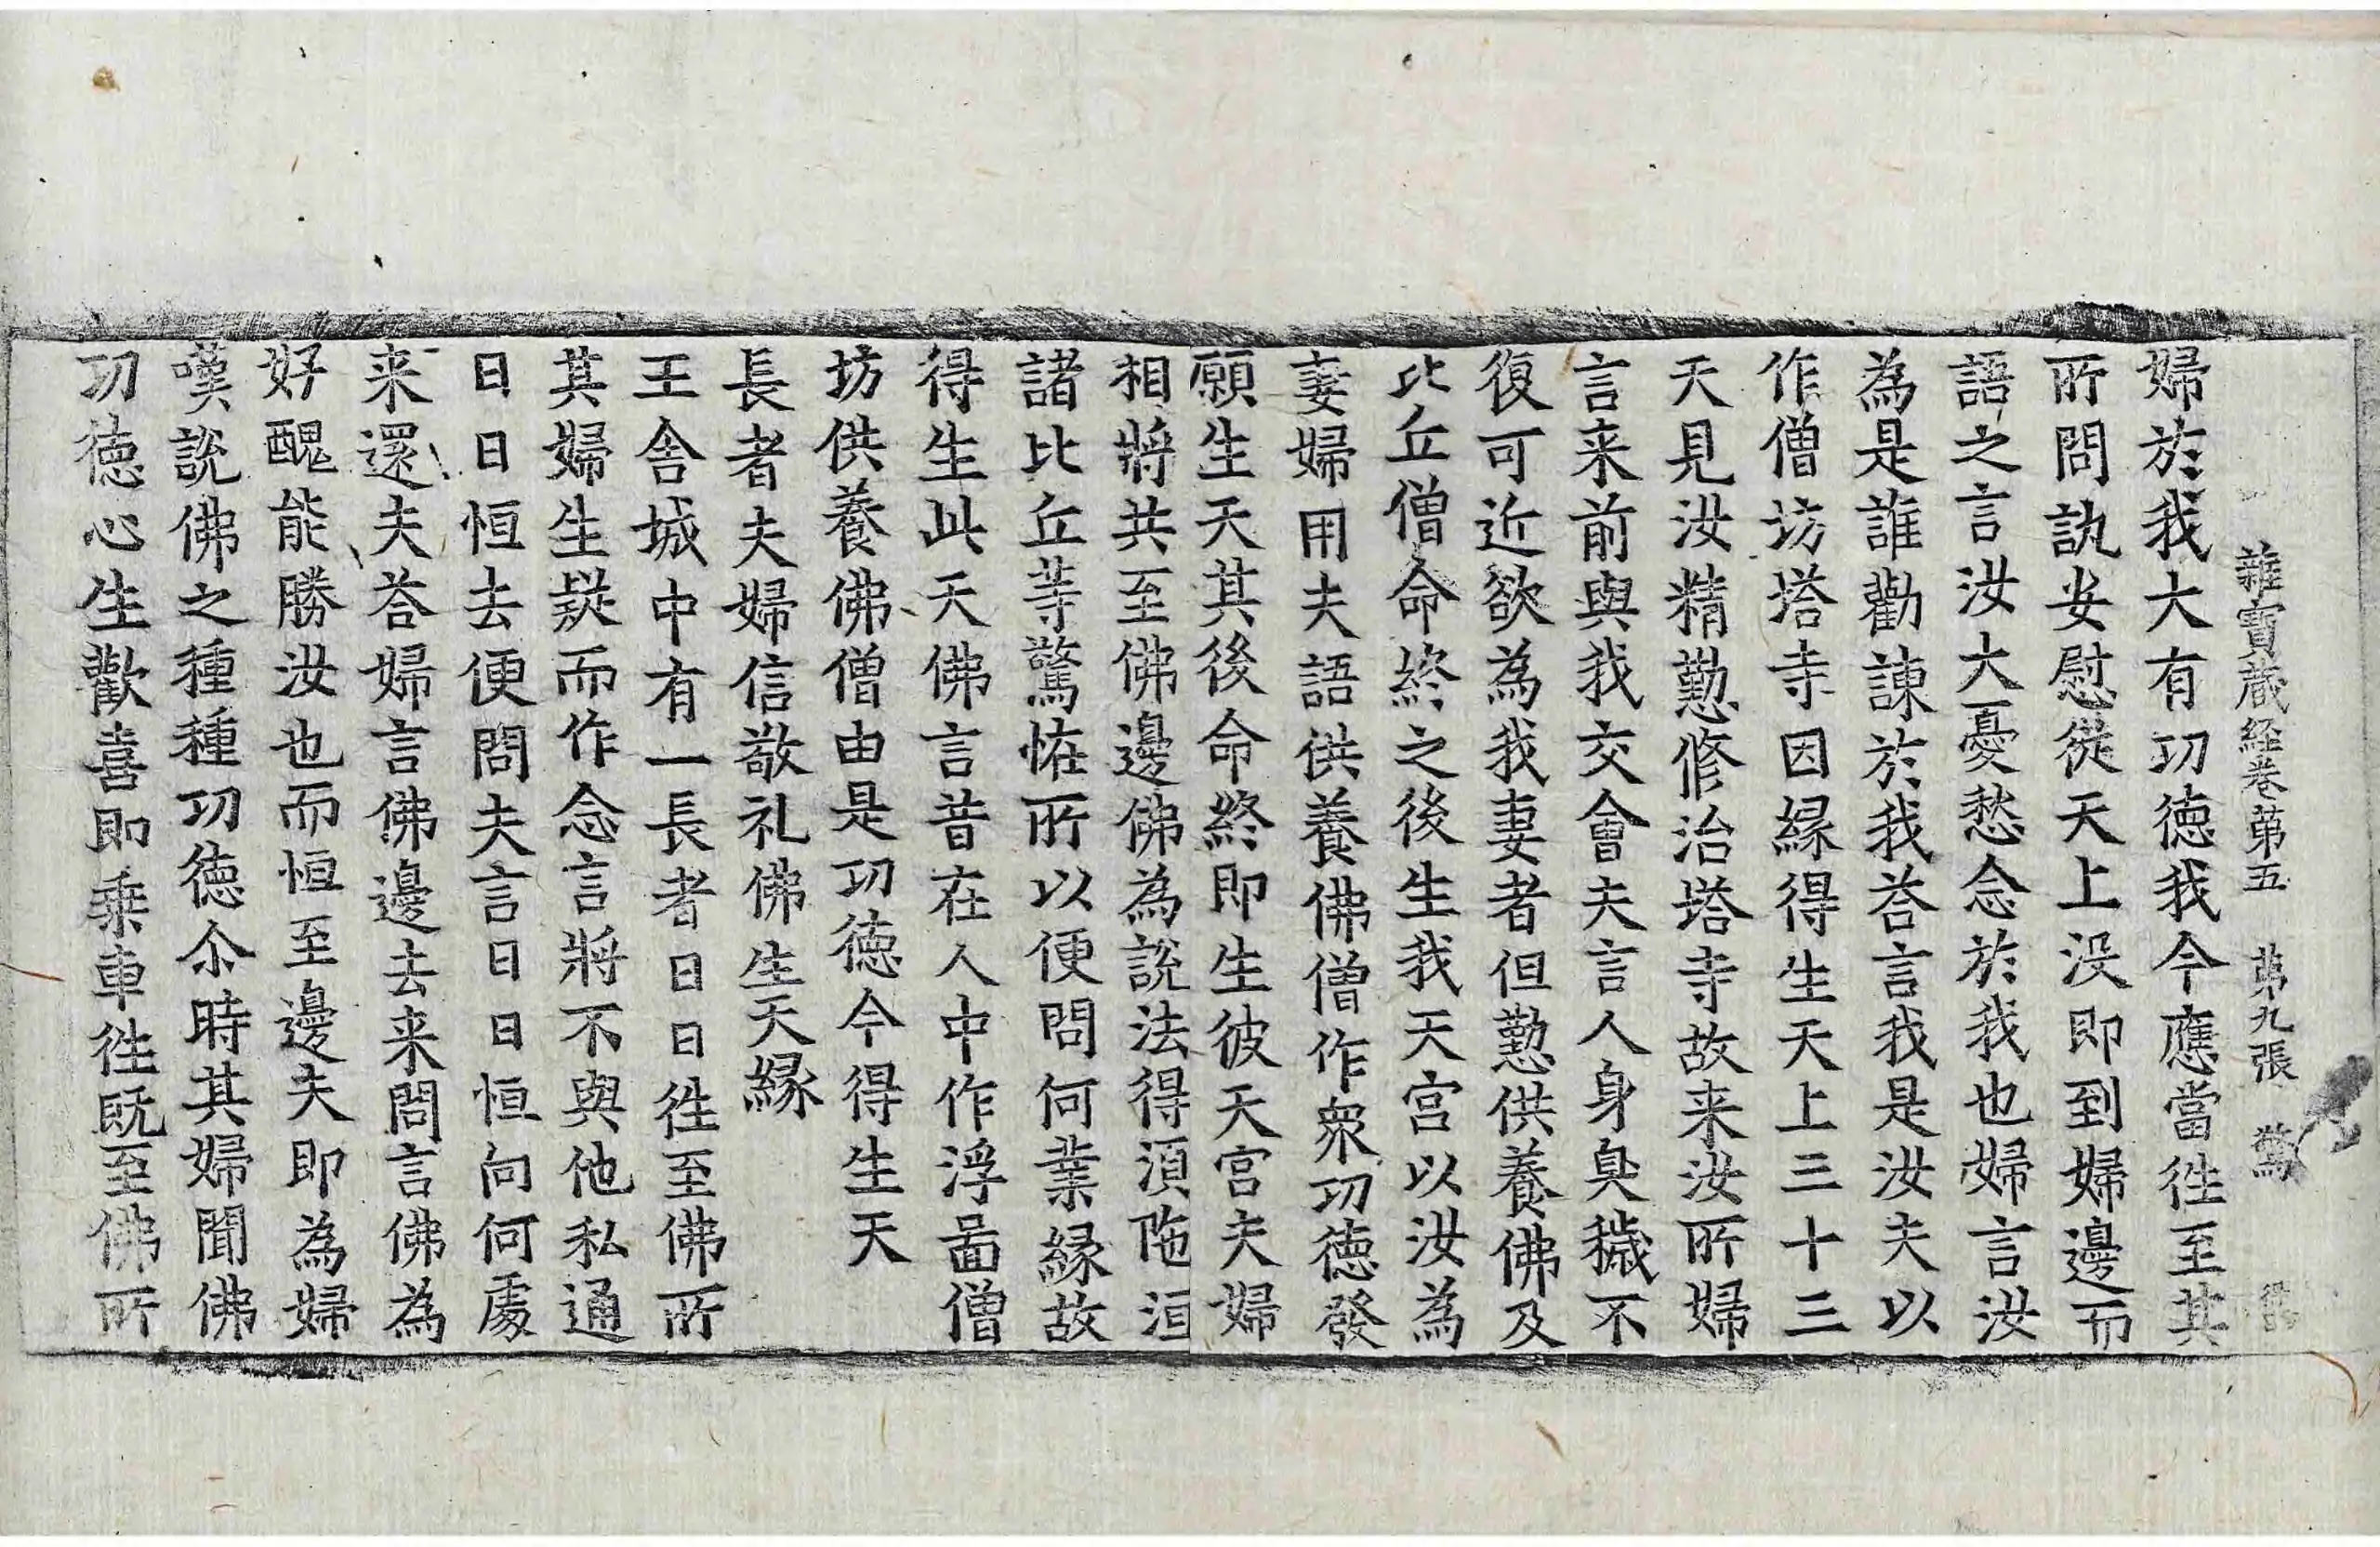 雜寶藏経卷第五　第九張　驚
婦於我大有功德我今應當徃至其
所問訊安慰從天上没即到婦邊而
語之言汝大憂愁念於我也婦言汝
為是誰勸諫於我荅言我是汝夫以
作僧坊塔寺因緣得生天上三十三
天見汝精懃修治塔寺故来汝所婦
言来前與我交會夫言人身臭穢不
復可近欲為我妻者但懃供養佛及
比丘僧命終之後生我天宮以汝為
妻婦用夫語供養佛僧作衆功德發
願生天其後命終即生彼天宮夫婦
相將共至佛邊佛為說法得湏陁洹
諸比丘等驚恠所以便問何業緣故
得生此天佛言昔在人中作浮啚僧
坊供養佛僧由是功德今得生天
長者夫婦信敬礼佛生天緣
王舍城中有一長者日日徃至佛所
其婦生疑而作念言將不與他私通
日日恒去便問夫言日日恒向何處
来還夫荅婦言佛邊去来問言佛為
好醜能勝汝也而恒至邊夫即為婦
嘆說佛之種種功德尒時其婦聞佛
功德心生歡喜即乗車徃既至佛所